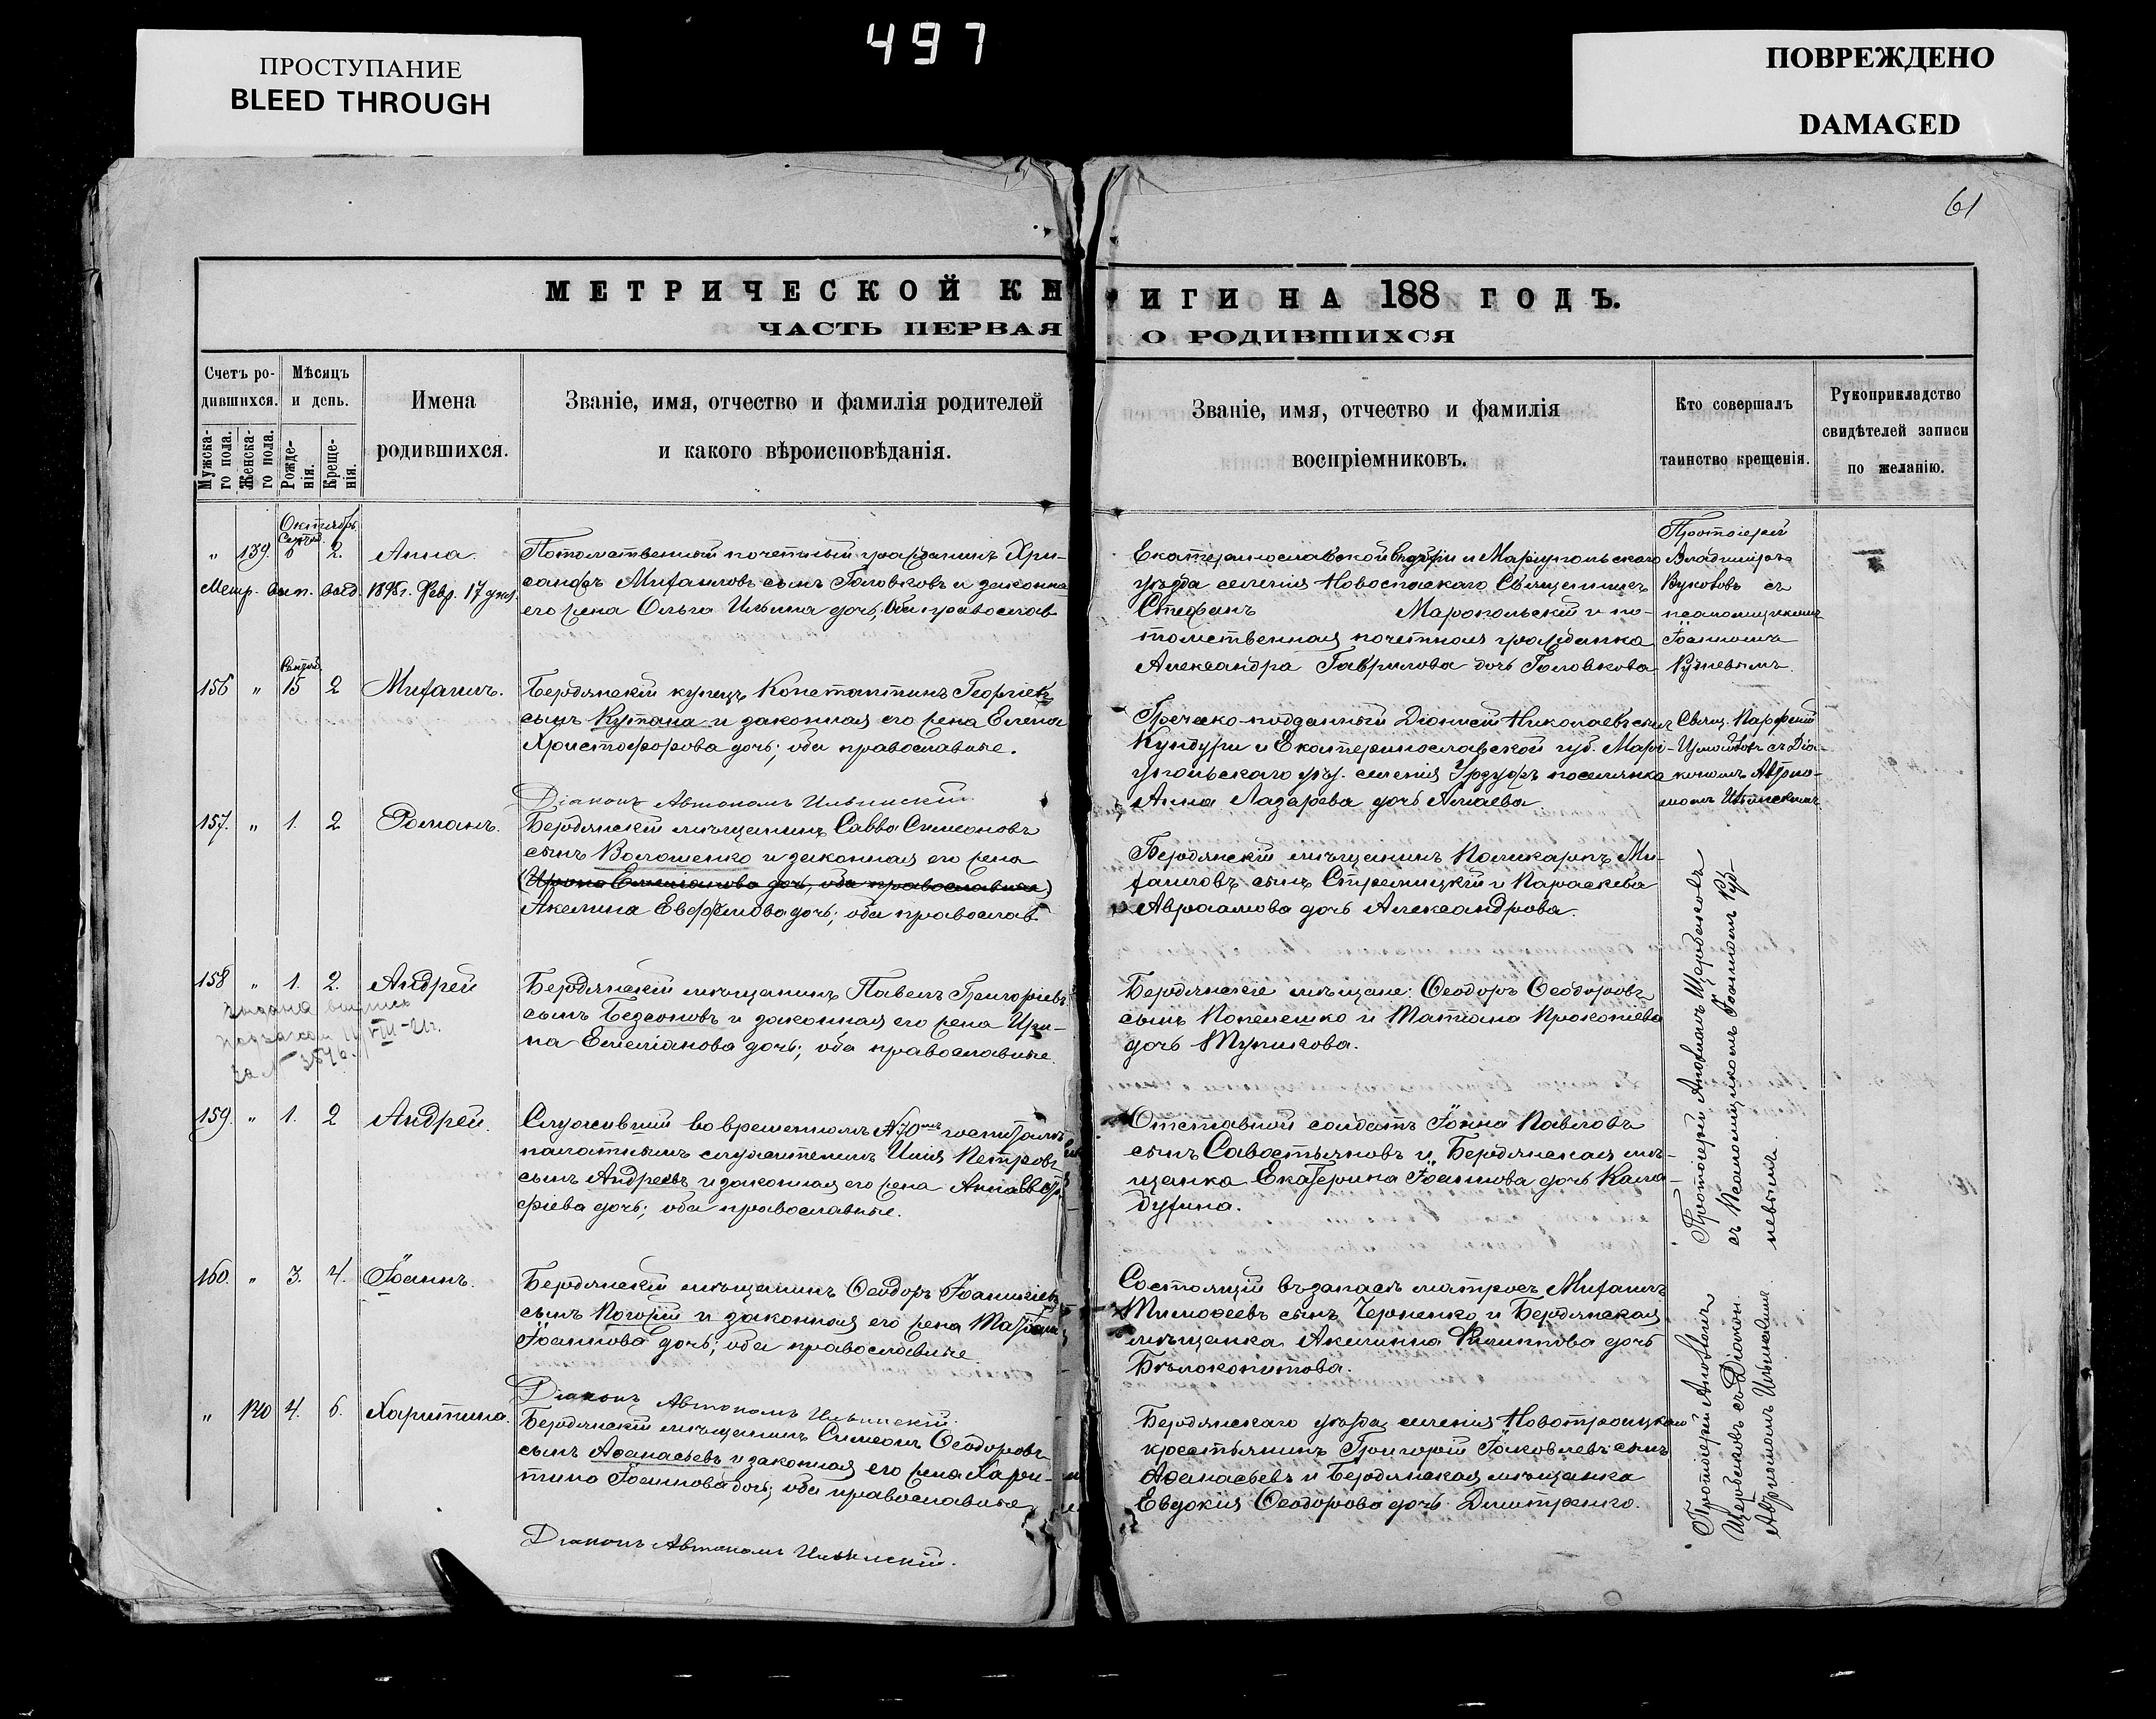 ПРОСТУПАНИЕ
BLEED THROUGH
497
ПОВРЕЖДЕНО
DAMAGED
61
МЕТРИЧЕСКОЙ КНИГИ НА 188 ГОДЪ.
ЧАСТЬ ПЕРВАЯ О РОДИВШИХСЯ
Счетъ ро-
дившихся.
Мужска-
го пола.
Женска-
го пола.
Мѣсяцъ
и день.
Рожде-
нія.
Креще-
нія.
Имена
родившихся.
Званіе, имя, отчество и фамилія родителей
и какого вѣроисповѣданія.
Званіе, имя, отчество и фамилія
воспріемниковъ.
Кто совершалъ
таинство крещенія.
Рукоприкладство
свидѣтелей записи
по желанію.
Октябрь
" 139. 6 2. Анна.
Метр. вып. выд. 1898 г. Февр. 17 дня
Потомственный почетный гражданинъ Хри-
санфъ Михаиловъ сынъ Головковъ и законная
его жена Ольга Ильина дочь, оба православ
Екатеринославской губерніи и Маріупольскаго
уѣзда селенія Новоспаскаго Священникъ
Стефанъ Маропольскій и по-
томственная почетная гражданка
Александра Гаврилова дочь Головкова
Протоіерей
Владиміръ
съ
псаломщикомъ
Іоанномъ
Рудневымъ.
156 " 15 2 Михаилъ.
Бердянскій купецъ Константинъ Георгіевъ
сынъ Кутана и законная его жена Елена
Христофорова дочь; оба православные.
Греческо-подданный Діонисій Николаевъ сынъ
Кундури и Екатеринославской губ. Марі-
упольскаго уѣз. селенія Урзуфъ поселянка
Анна Лазарева дочь
Свящ. Парфеній
съ Діа-
кономъ Автоно-
момъ Ильинскимъ
Діаконъ Автономъ Ильинскій
157. " 1. 2 Романъ.
Бердянскій мѣщанинъ Савва Симеоновъ
сынъ Волошенко и законная его жена
(Ирина Емеліанова дочь, оба православные)
Акелина Евфимова дочь; оба православ
Бердянскій мѣщанинъ Поликарпъ Ми-
хаиловъ сынъ Стрелицкій и Параскева
Авраамова дочь Александрова.
158 " 1. 2. Андрей
Бердянскій мѣщанинъ Павелъ Григоріевъ
сынъ Безсоновъ и законная его жена Ири-
на Емеліанова дочь; оба православные.
Бердянскіе мѣщане: Ѳеодоръ Ѳеодоровъ
сынъ Копелешко и Татіана Прокопіева
дочь Тупикова.
159. " 1. 2 Андрей.
Служившій во временномъ №70мъ госпиталѣ
палатнымъ служителемъ Илія Петровъ
сынъ Андреевъ и законная его жена Анна
фіева дочь; оба православные.
Отставной солдатъ Іоанна Павловъ
сынъ Савостьяновъ и Бердянская мѣ-
щанка Екатерина Іоаннова дочь Кала-
духина.
Протоіерей Аполлонъ Щербаковъ
съ Псаломщикомъ Іоанномъ Руд-
невымъ.
160. " 3. 4. Іоаннъ.
Бердянскій мѣщанинъ Ѳеодоръ Іоанникіевъ
сынъ и законная его жена Татіана
Іоаннова дочь; оба православные
Состоящій въ запасѣ матросъ Михаилъ
Тимоѳеевъ сынъ Черненко и Бердянская
мѣщанка Акилина Филиппова дочь
Бѣлокопитова.
Діаконъ Автономъ Ильинскій.
" 140 4. 6. Харитина.
Бердянскій мѣщанинъ Симеонъ Ѳеодоровъ
сынъ Аѳанасьевъ и законная его жена Хари-
тина Іоаннова дочь; оба православные
Бердянскаго уѣзда, селенія Новотроицкаго
крестьянинъ Григорій Іаковлевъ сынъ
Аѳанасьевъ и Бердянская мѣщанка
Евдокія Ѳеодорова дочь Дмитренко.
Протоіерей Аполлонъ
Щербаковъ съ Діакон.
Автономомъ Ильинскимъ
Діаконъ Автономъ Ильинскій.